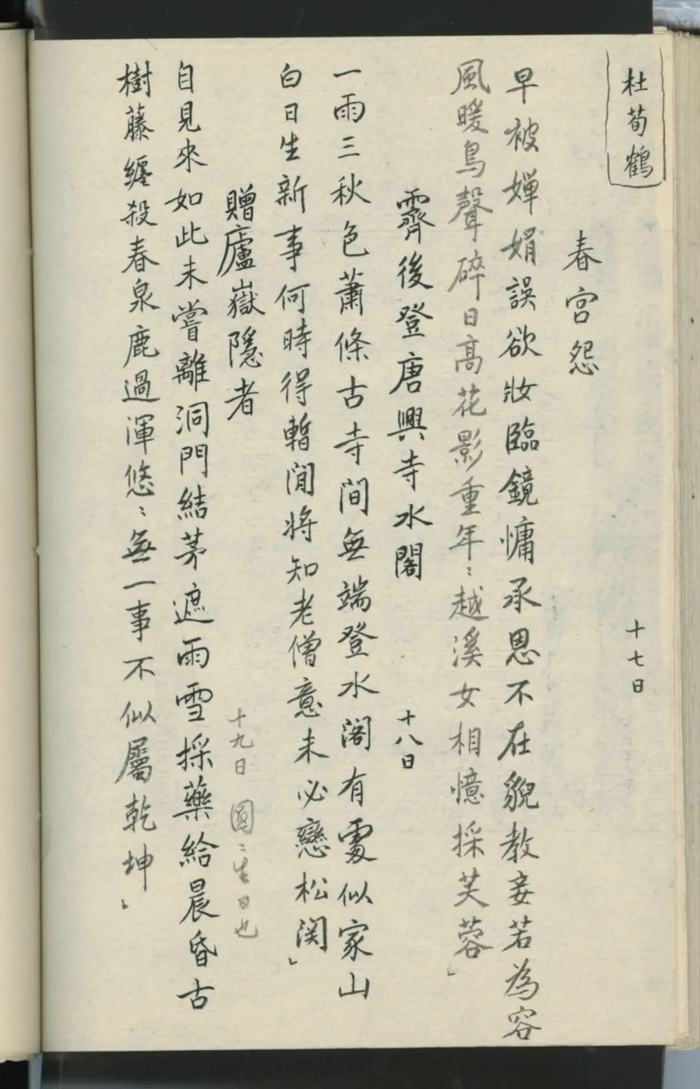 杜荀鶴
十七日
春宮怨
早被嬋娟誤欲妝臨鏡慵承恩不在貌教妾若為容
風暖鳥聲碎日高花影重年〻越溪女相憶採芙蓉」
霽後登唐興寺水閣
十八日
一雨三秋色蕭條古寺間無端登水閣有處似家山
白日生新事何時得暫閒將知老僧意未必戀松関」
贈廬嶽隱者
十九日 圓〻生日也
自見來如此未嘗離洞門結茅遮雨雪採藥給晨昏古
樹藤纏殺春泉鹿過渾悠〻無一事不似屬乾坤」